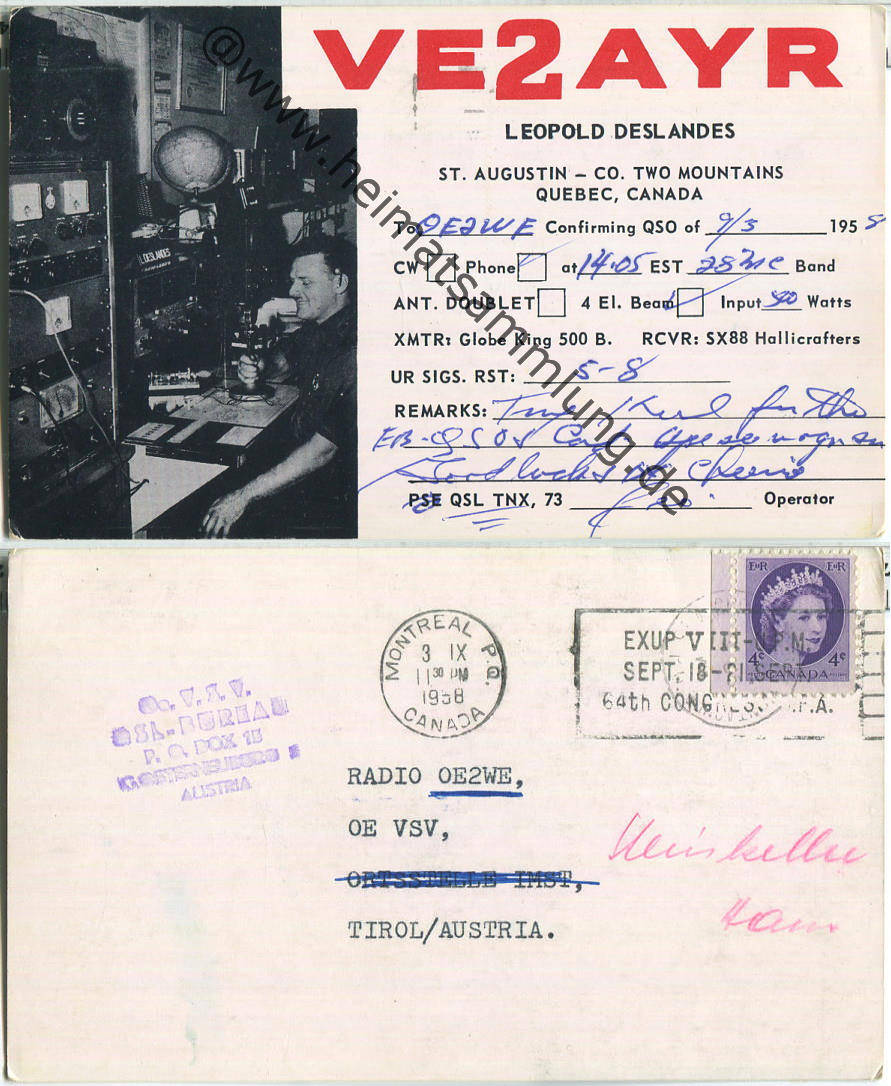 VE2AYR
LEOPOLD DESLANDES
ST. AUGUSTIN – CO. TWO MOUNTAINS
QUEBEC, CANADA
To OE2WE Confirming QSO of 9/3 1958
CW Phone at 14.05 EST 28 mc Band
ANT. DOUBLET 4 El. Beam Input 90 Watts
XMTR: Globe King 500 B. RCVR: SX88 Hallicrafters
UR SIGS. RST: 5-8
REMARKS: for the
QSO
Good luck
PSE QSL TNX, 73 Operator
L. DESLANDES
@www.heimatsammlung.de
MONTREAL P.Q.
3 IX
11 30 PM
1958
CANADA
EXUP VIII - P.M.
SEPT. 18-21 SEPT.
64th CONGRESS P.A.
EⅡR EⅡR
4¢ 4¢
CANADA
Oe. V. S. V.
QSL-BUREAU
P. O. BOX 15
KLOSTERNEUBURG 2
AUSTRIA
RADIO OE2WE,
OE VSV,
ORTSSTELLE IMST,
TIROL/AUSTRIA.